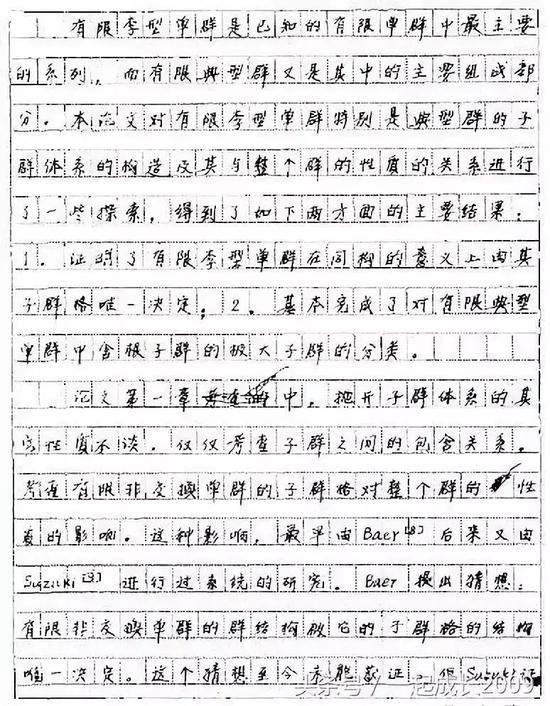 有限李型单群是已知的有限单群中最主要
的系列，而有限典型群又是其中的主要组成部
分。本论文对有限李型单群特别是典型群的子
群体系的构造及其与整个群的性质的关系进行
了一些探索，得到了如下两方面的主要结果：
1. 证明了有限李型单群在同构的意义上由其
子群格唯一决定；2. 基本完成了对有限典型
单群中含根子群的极大子群的分类。
论文第一章中，抛开子群体系的其
它性质不谈，仅仅考查子群之间的包含关系，
考查有限非交换单群的子群格对整个群的性
质的影响。这种影响，最早由Baer[8]后来又由
Suzuki[9]进行过系统的研究。Baer提出猜想：
有限非交换单群的群结构被它的子群格的结构
唯一决定。这个猜想至今未能获证。但Suzuki证
头条号/一起成长2009